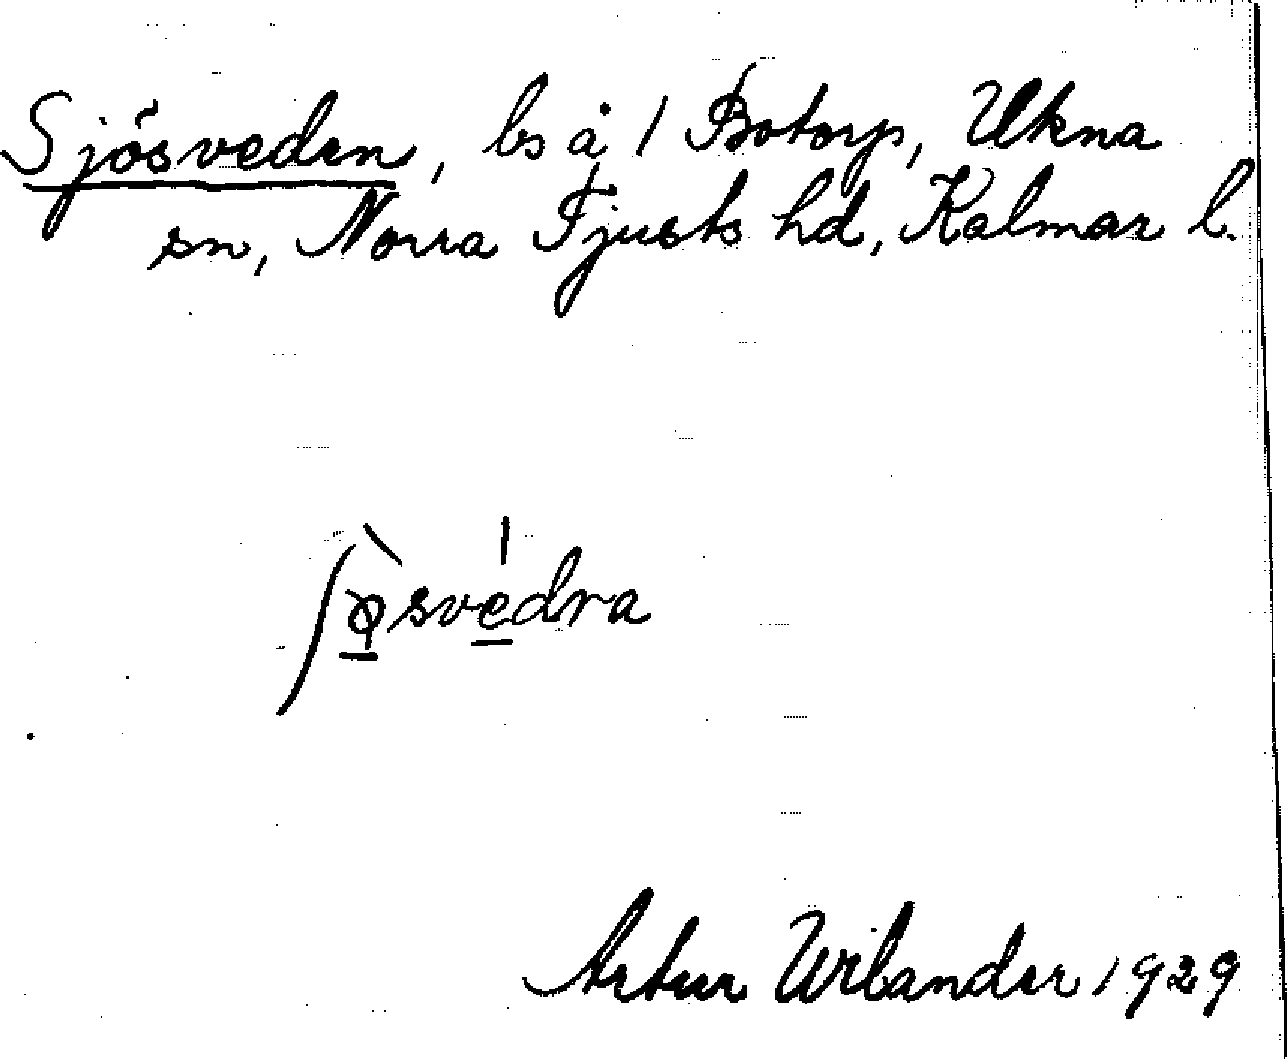 Sjösveden, ls å 1 Botorp, Ukna
sn, Norra Tjusts hd, Kalmar l.
svedra
Artur Wilander 1929